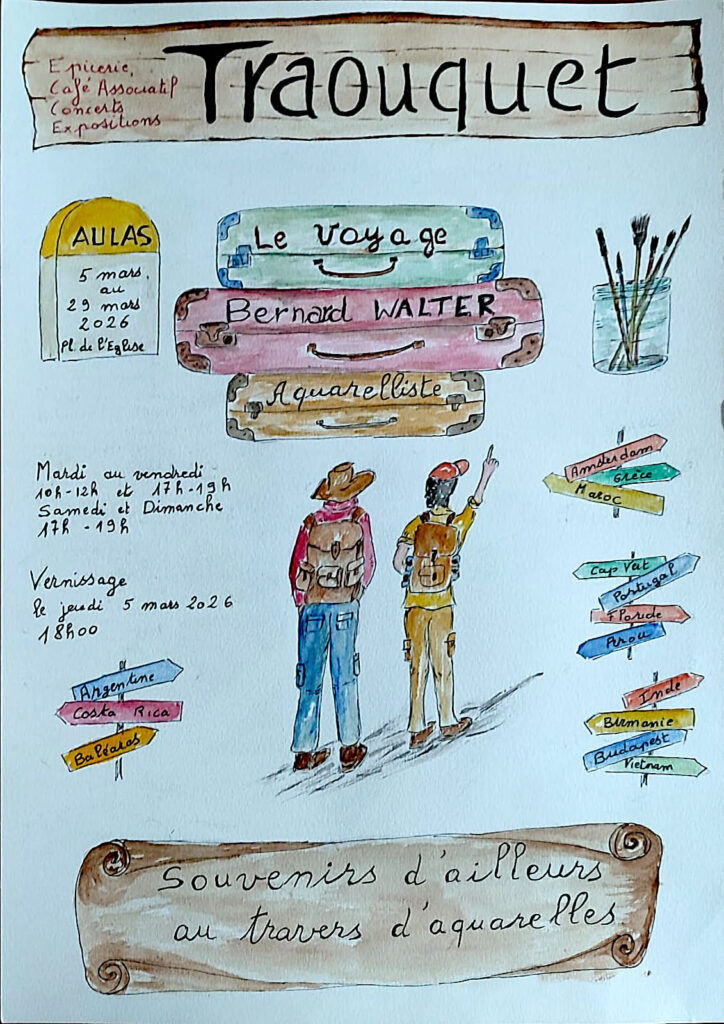 Epicerie,
Café Associatif
Concerts
Expositions
Traouquet
AULAS
5 mars
au
29 mars
2026
Pl. de l'Eglise
Le Voyage
Bernard WALTER
Aquarelliste
Mardi au vendredi
10h-12h et 17h-19h
Samedi et Dimanche
17h - 19h
Vernissage
le jeudi 5 mars 2026
18h00
Argentine
Costa Rica
Baléares
Amsterdam
Grèce
Maroc
Cap Vert
Portugal
Floride
Pérou
Inde
Birmanie
Budapest
Vietnam
Souvenirs d'ailleurs
au travers d'aquarelles